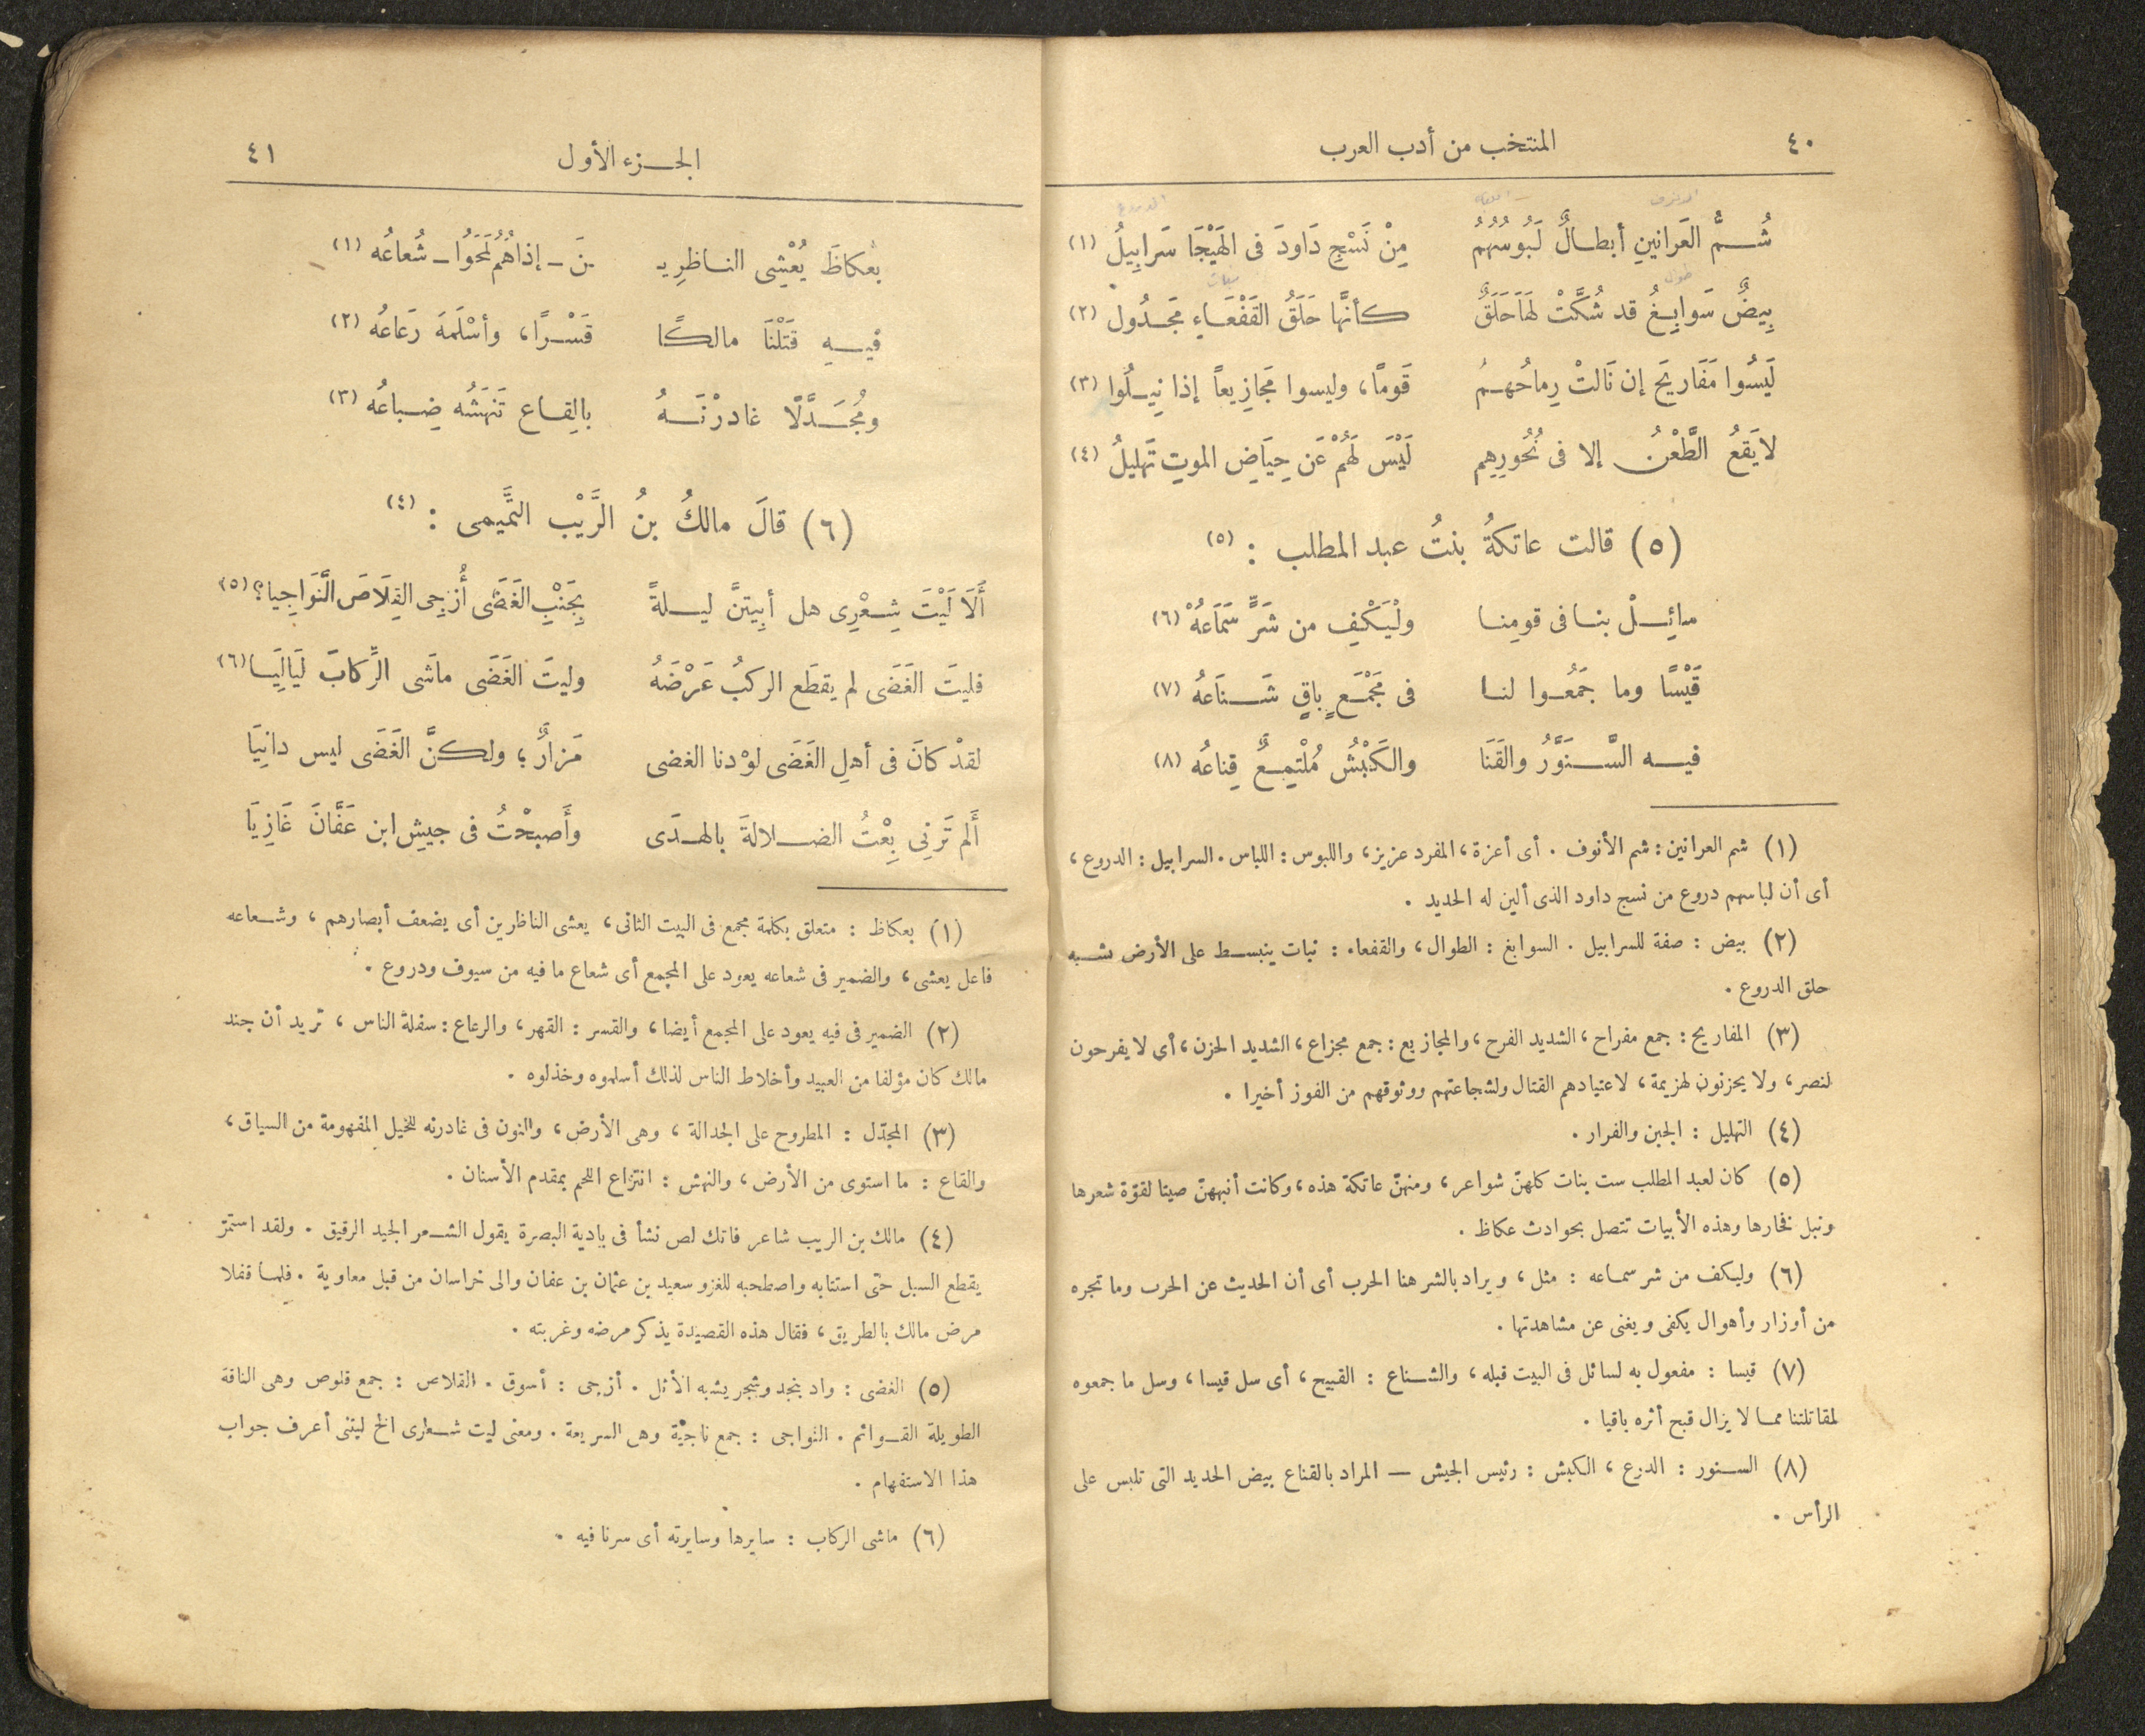 ٤٠
المنتخب من أدب العرب
شُمُّ العَرانينِ أبطالٌ لَبُوسُهُمُ مِنْ نَسْجِ دَاودَ فى الهَيْجَا سَرابِيلُ (١)
بِيضٌ سَوابِغُ قد شُكَّتْ لهَا حَلَقٌ كأنَّها حَلَقُ القَفْعَاءِ مَجدُول (٢)
لَيسُوا مَفَاريحَ إن نَالتْ رِماحُهمُ قَومًا، وليسوا مَجَازِيعاً إذا نِيلُوا (٣)
لا يَقعُ الطَّعْنُ إلا فى نُحُورِهِم لَيْسَ لَهُمْ عَن حِيَاضِ الموتِ تَهليلُ (٤)
(٥) قالت عاتكةُ بنتُ عبد المطلب : (٥)
سائِلْ بنا فى قومِنا ولْيَكْفِ من شَرٍّ سَمَاعَهُ (٦)
قَيْسًا وما جَمَعُوا لنا فى مَجْمَعٍ باقٍ شَناعَهُ (٧)
فيه السَّنَوَّرُ والقَنَا والكَبْشُ مُلْتَمِعٌ قِناعُهُ (٨)
(١) شم العرانين : شم الأنوف . أى أعزة ، المفرد عزيز ، واللبوس : اللباس . السرابيل : الدروع ،
أى أن لباسهم دروع من نسج داود الذى ألين له الحديد .
(٢) بيض : صفة للسرابيل . السوابغ : الطوال ، والقفعاء : نبات ينبسط على الأرض يشبه
حلق الدروع .
(٣) المفاريح : جمع مفراح ، الشديد الفرح ، والمجازيع : جمع مجزاع ، الشديد الحزن ، أى لا يفرحون
لنصر ، ولا يحزنون لهزيمة ، لاعتيادهم القتال ولشجاعتهم ووثوقهم من الفوز أخيرا .
(٤) التهليل : الجبن والفرار .
(٥) كان لعبد المطلب ست بنات كلهنّ شواعر ، ومنهنّ عاتكة هذه ، وكانت أنبههنّ صيتا لقوّة شعرها
ونبل فخارها وهذه الأبيات تتصل بحوادث عكاظ .
(٦) وليكف من شر سماعه : مثل ، ويراد بالشر هنا الحرب أى أن الحديث عن الحرب وما تجره
من أوزار وأهوال يكفى ويغنى عن مشاهدتها .
(٧) قيسا : مفعول به لسائل فى البيت قبله ، والشناع : القبيح ، أى سل قيسا ، وسل ما جمعوه
لمقاتلتنا مما لا يزال قبح أثره باقيا .
(٨) السنور : الدرع ، الكبش : رئيس الجيش — المراد بالقناع بيض الحديد التى تلبس على
الرأس .
الجزء الأول
٤١
بعكاظَ يُعْشِى الناظرِيـ ـنَ ــ إذا هُمُ لَمَحَوُا ــ شُعاعُه (١)
فيهِ قَتَلْنَا مالكًا قَسْرًا، وأسْلَمهَ رَعاعُه (٢)
ومُجَدَّلًا غادرْنَهُ بالقاع تَنهَشُه ضِباعُه (٣)
(٦) قالَ مالكُ بنُ الرَّيْب التَّميمى : (٤)
أَلَا لَيْتَ شِعْرِى هل أَبِيتنَّ ليلةً بِجَنْبِ الغَضَى أُزْجِى القِلَاصَ النَّوَاجِيا؟ (٥)
فليتَ الغَضَى لم يقطَع الركبُ عَرْضَهُ وليتَ الغَضَى ماشَى الرِّكابَ لَيَالِيَا (٦)
لقدْ كانَ فى أهلِ الغَضَى لوْ دنا الغضى مَزارٌ ؛ ولكنَّ الغَضَى ليس دانِيَا
أَلم تَرنِى بِعْتُ الضلالةَ بالهدَى وأَصبحْتُ فى جيشِ ابن عَفَّانَ غَازِيَا
(١) بعكاظ : متعلق بكلمة مجمع فى البيت الثانى ، يعشى الناظرين أى يضعف أبصارهم ، وشعاعه
فاعل يعشى ، والضمير فى شعاعه يعود على المجمع أى شعاع ما فيه من سيوف ودروع .
(٢) الضمير فى فيه يعود على المجمع أيضا ، والقسر : القهر ، والرعاع : سفلة الناس ، تريد أن جند
مالك كان مؤلفا من العبيد وأخلاط الناس لذلك أسلموه وخذلوه .
(٣) المجدّل : المطروح على الجدالة ، وهى الأرض ، والنون فى غادرنه للخيل المفهومة من السياق ،
والقاع : ما استوى من الأرض ، والنهش : انتزاع اللحم بمقدم الأسنان .
(٤) مالك بن الريب شاعر فاتك لص نشأ فى بادية البصرة يقول الشعر الجيد الرقيق . ولقد استمرّ
يقطع السبل حتى استتابه واصطحبه للغزو سعيد بن عثمان بن عفان والى خراسان من قبل معاوية . فلما قفلا
مرض مالك بالطريق ، فقال هذه القصيدة يذكر مرضه وغربته .
(٥) الغضى : واد بنجد وشجر يشبه الأثل . أزجى : أسوق . القلاص : جمع قلوص وهى الناقة
الطويلة القوائم . النواجى : جمع ناجية وهى السريعة . ومعنى ليت شعرى الخ ليتنى أعرف جواب
هذا الاستفهام .
(٦) ماشى الركاب : سايرها وسايرته أى سرنا فيه .